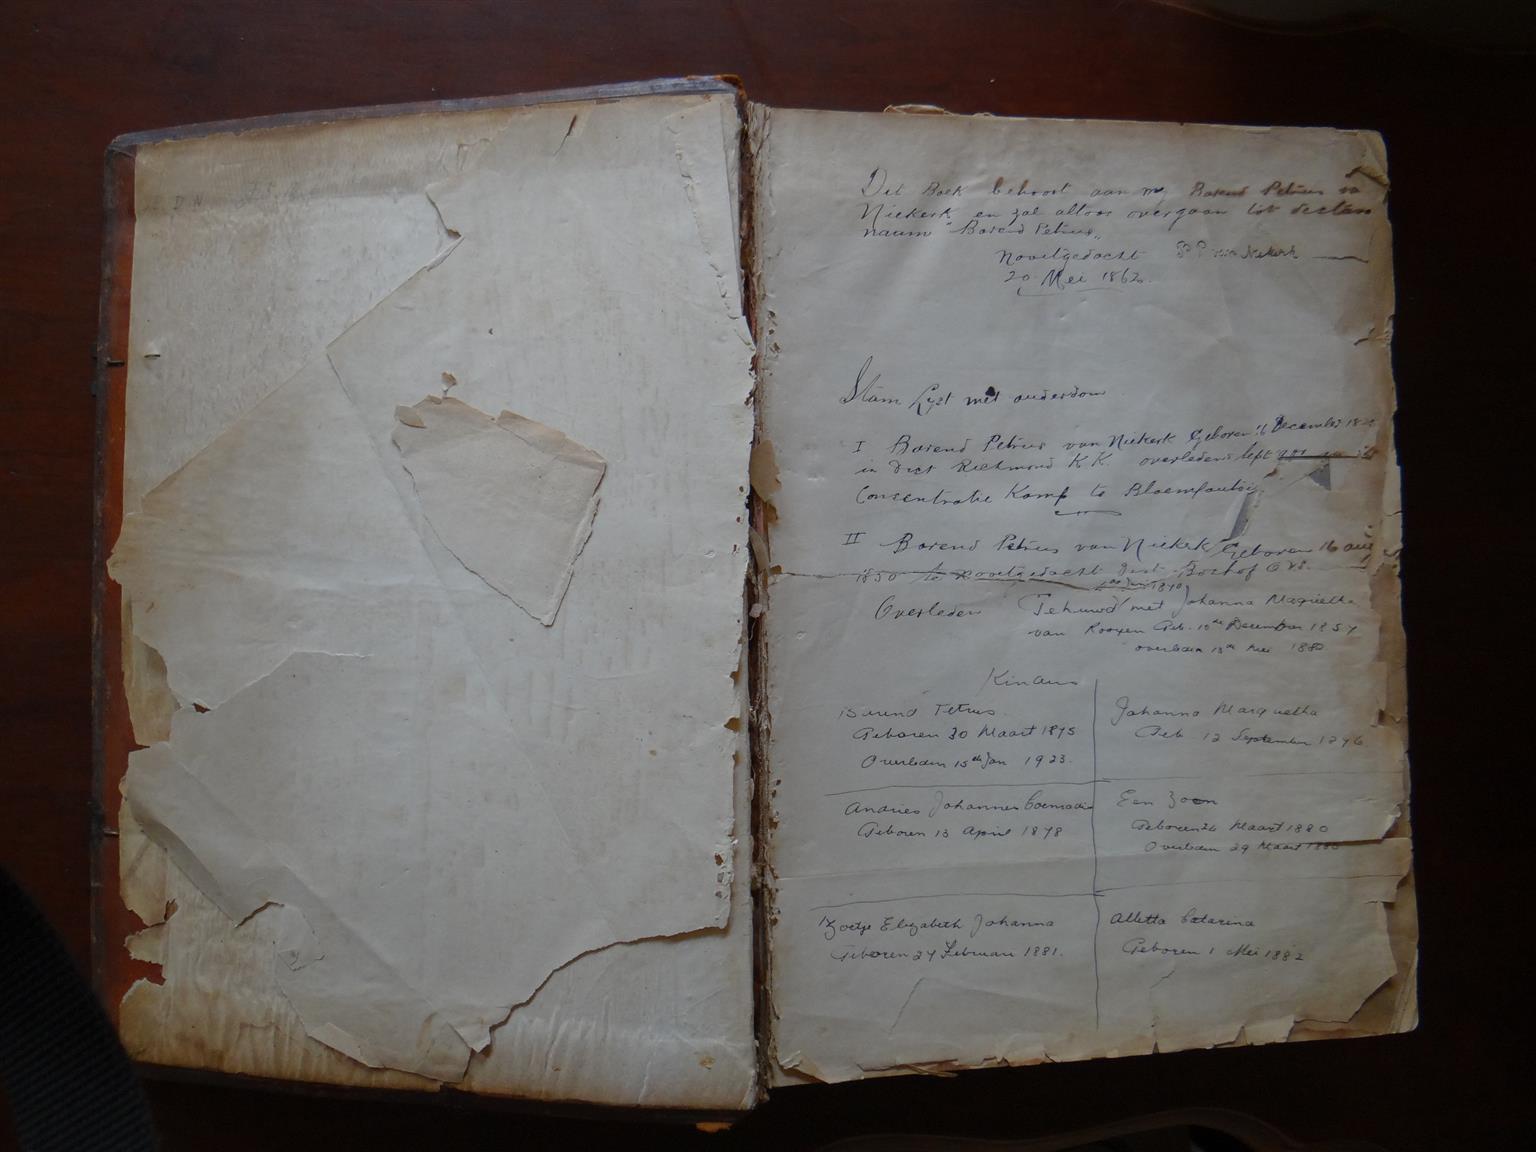 Dit Boek behoort aan my Barend Petrus va
Niekerk en zal altoos overgaan tot
naam "Barend Petrus"
Nooitgedacht B P van Niekerk
20 Mei 1862.
Stam Lyst met ouderdom
I Barend Petrus van Niekerk Geboren 16 December 18
in Dist Richmond K.K. overleden Sept
Concentratie Kamp te Bloemfontein
II Barend Petrus van Niekerk Geboren 16 Aug
1850 te Nooitgedacht Dist Boshof O V S.
Overleden Gehuwd met Johanna Magrietha
van Rooyen Geb. 10de December 1857
overleden 13de Mei 1880
Barend Petrus
Geboren 30 Maart 1875
Overleden 15de Jan 1923.
Johanna Margrietha
Geb 12 September 1876
Andries Johannes Coenraad
Geboren 13 April 1878
Een Zoon
Geboren 26 Maart 1880
Overleden 29 Maart 1880
Elizabeth Johanna
Geboren 27 Februari 1881.
Alletta Catarina
Geboren 1 Mei 1882